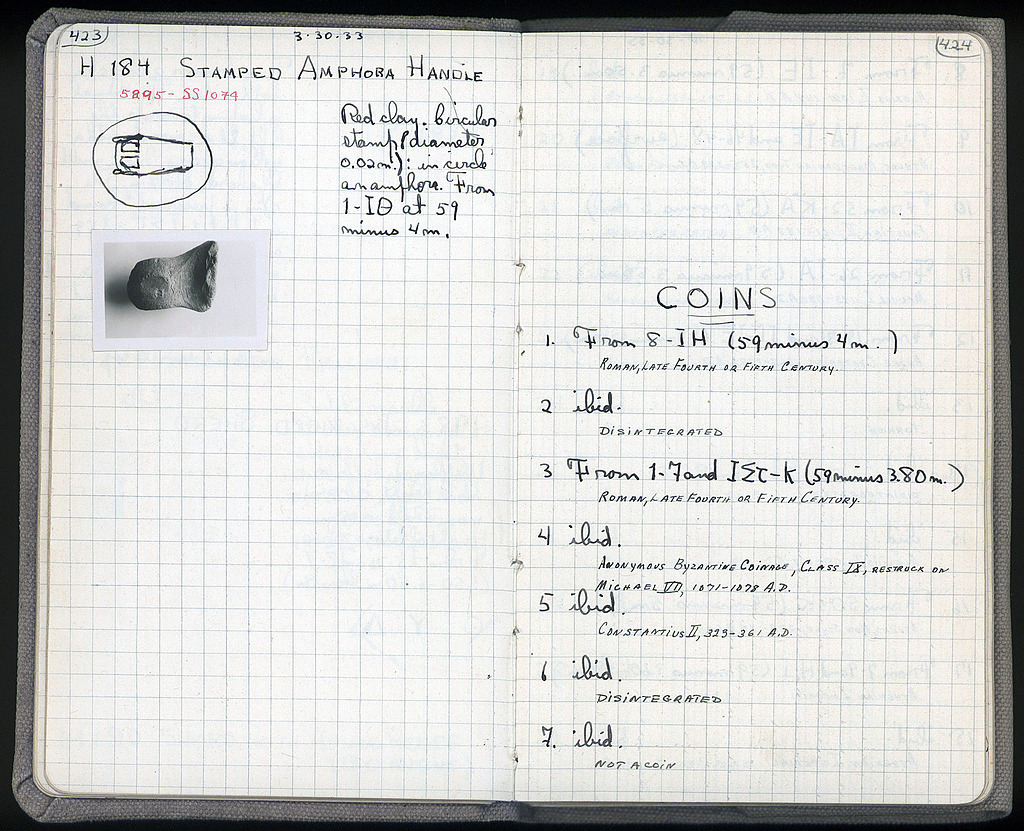 423
3·30·33
H 184 STAMPED AMPHORA HANDLE
5295 - SS1074
Red clay. Circular
stamp (diameter
0.02m.): in circle
an amphora. From
1-ΙΘ at 59
minus 4m.
424
COINS
1. From 8-ΙΗ (59 minus 4m.)
ROMAN, LATE FOURTH OR FIFTH CENTURY.
2 ibid.
DISINTEGRATED
3 From 1-7 and ΙΣΤ-Κ (59 minus 3.80m.)
ROMAN, LATE FOURTH OR FIFTH CENTURY.
4 ibid.
ANONYMOUS BYZANTINE COINAGE, CLASS IX, RESTRUCK ON
MICHAEL VII, 1071-1078 A.D.
5 ibid.
CONSTANTIUS II, 323-361 A.D.
6 ibid.
DISINTEGRATED
7. ibid.
NOT A COIN